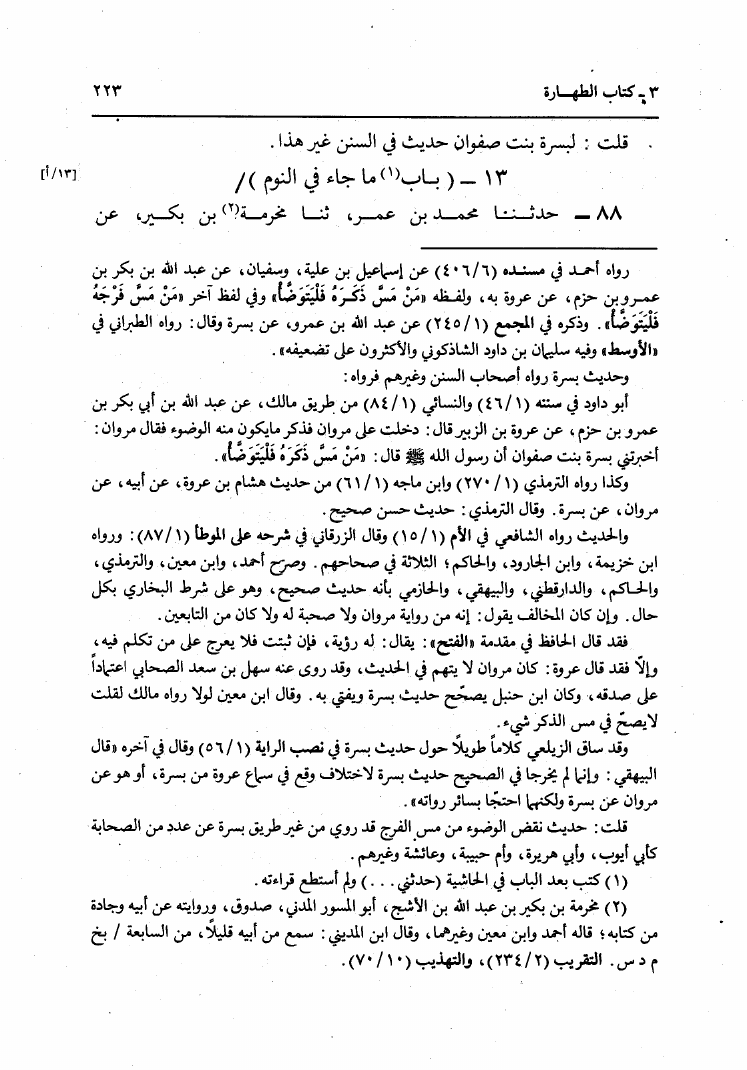 ٣ - كتاب الطهـارة ٢٢٣
قلت : لبسرة بنت صفوان حديث في السنن غير هذا .
١٣ – ( بـاب(١) ما جاء في النوم )/ [١٣/أ]
٨٨ – حدثـنـا محمـد بن عمـر، ثنـا مخرمـة(٢) بن بكـير، عن
رواه أحمـد في مسنـده (٤٠٦/٦) عن إسماعيل بن علية، وسفيان، عن عبد الله بن بكر بن
عمـرو بن حزم، عن عروة به، ولفـظه «مَنْ مَسَّ ذَكَـرَهُ فَلْيَتَوَضَّأْ» وفي لفظ آخر «مَنْ مَسَّ فَرْجَهُ
فَلْيَتَوَضَّأْ». وذكره في المجمع (٢٤٥/١) عن عبد الله بن عمرو، عن بسرة وقال: رواه الطبراني في
«الأوسط» وفيه سليمان بن داود الشاذكوني والأكثرون على تضعيفه» .
وحديث بسرة رواه أصحاب السنن وغيرهم فرواه:
أبو داود في سننه (٤٦/١) والنسائي (٨٤/١) من طريق مالك، عن عبد الله بن أبي بكر بن
عمرو بن حزم، عن عروة بن الزبير قال: دخلت على مروان فذكر مايكون منه الوضوء فقال مروان:
أخبرتني بسرة بنت صفوان أن رسول الله ﷺ قال: «مَنْ مَسَّ ذَكَرَهُ فَلْيَتَوَضَّأْ».
وكذا رواه الترمذي (٢٧٠/١) وابن ماجه (٦١/١) من حديث هشام بن عروة، عن أبيه، عن
مروان، عن بسرة. وقال الترمذي: حديث حسن صحيح.
والحديث رواه الشافعي في الأم (١٥/١) وقال الزرقاني في شرحه على الموطأ (٨٧/١): ورواه
ابن خزيمة، وابن الجارود، والحاكم؛ الثلاثة في صحاحهم. وصرح أحمد، وابن معين، والترمذي،
والحـاكم، والدارقطني، والبيهقي، والحازمي بأنه حديث صحيح، وهو على شرط البخاري بكل
حال. وإن كان المخالف يقول: إنه من رواية مروان ولا صحبة له ولا كان من التابعين.
فقد قال الحافظ في مقدمة «الفتح»: يقال: له رؤية، فإن ثبتت فلا يعرج على من تكلم فيه،
وإلّا فقد قال عروة: كان مروان لا يتهم في الحديث، وقد روى عنه سهل بن سعد الصحابي اعتماداً
على صدقه، وكان ابن حنبل يصحّح حديث بسرة ويفتي به. وقال ابن معين لولا رواه مالك لقلت
لايصحّ في مس الذكر شيء.
وقد ساق الزيلعي كلاماً طويلاً حول حديث بسرة في نصب الراية (٥٦/١) وقال في آخره «قال
البيهقي: وإنما لم يخرجا في الصحيح حديث بسرة لاختلاف وقع في سماع عروة من بسرة، أو هو عن
مروان عن بسرة ولكنهما احتجّا بسائر رواته».
قلت: حديث نقض الوضوء من مس الفرج قد روي من غير طريق بسرة عن عدد من الصحابة
كأبي أيوب، وأبي هريرة، وأم حبيبة، وعائشة وغيرهم.
(١) كتب بعد الباب في الحاشية (حدثني . . .) ولم أستطع قراءته.
(٢) مخرمة بن بكير بن عبد الله بن الأشج، أبو المسور المدني، صدوق، وروايته عن أبيه وجادة
من كتابه؛ قاله أحمد وابن معين وغيرهما، وقال ابن المديني: سمع من أبيه قليلاً، من السابعة / بخ
م د س. التقريب (٢٣٤/٢)، والتهذيب (٧٠/١٠).